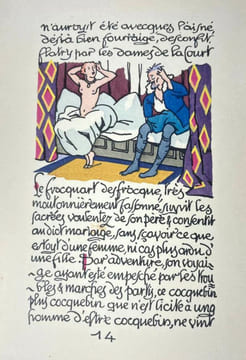 n'auroit été avecques l'aisné
desià bien courtaigé, desconfit,
flatry par les dames de la Court
Le frocquart desfrocqué, très
moutonnièrement tassonné, suyvit les
sacrées voulentez de son père & consentit
audict mariaige, sans sçavoir ce que
estoyt d'une femme, ni cas plus ardu, d'
une fille. Par adventure, son voyai-
ge ayant esté empesché par les trou-
bles & marches des partys, ce cocquebin
plus cocquebin que n'est licite à ung
homme d'estre cocquebin, ne vint
14